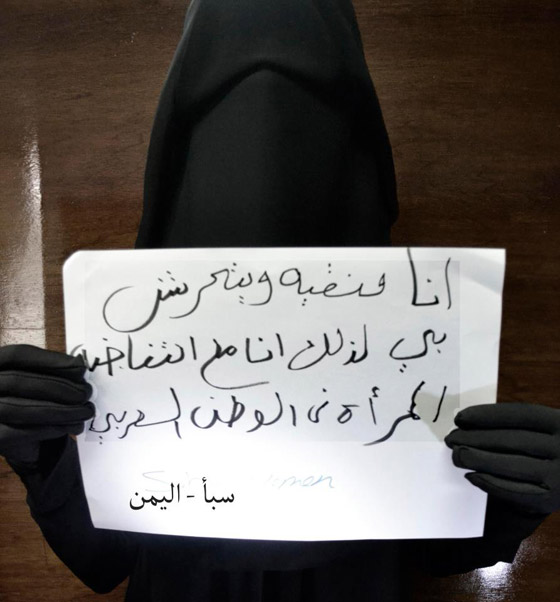 انا منقبه ويتحرش
بي لذلك انا مع انتفاضه
المرأة في الوطن العربي
سبأ - اليمن